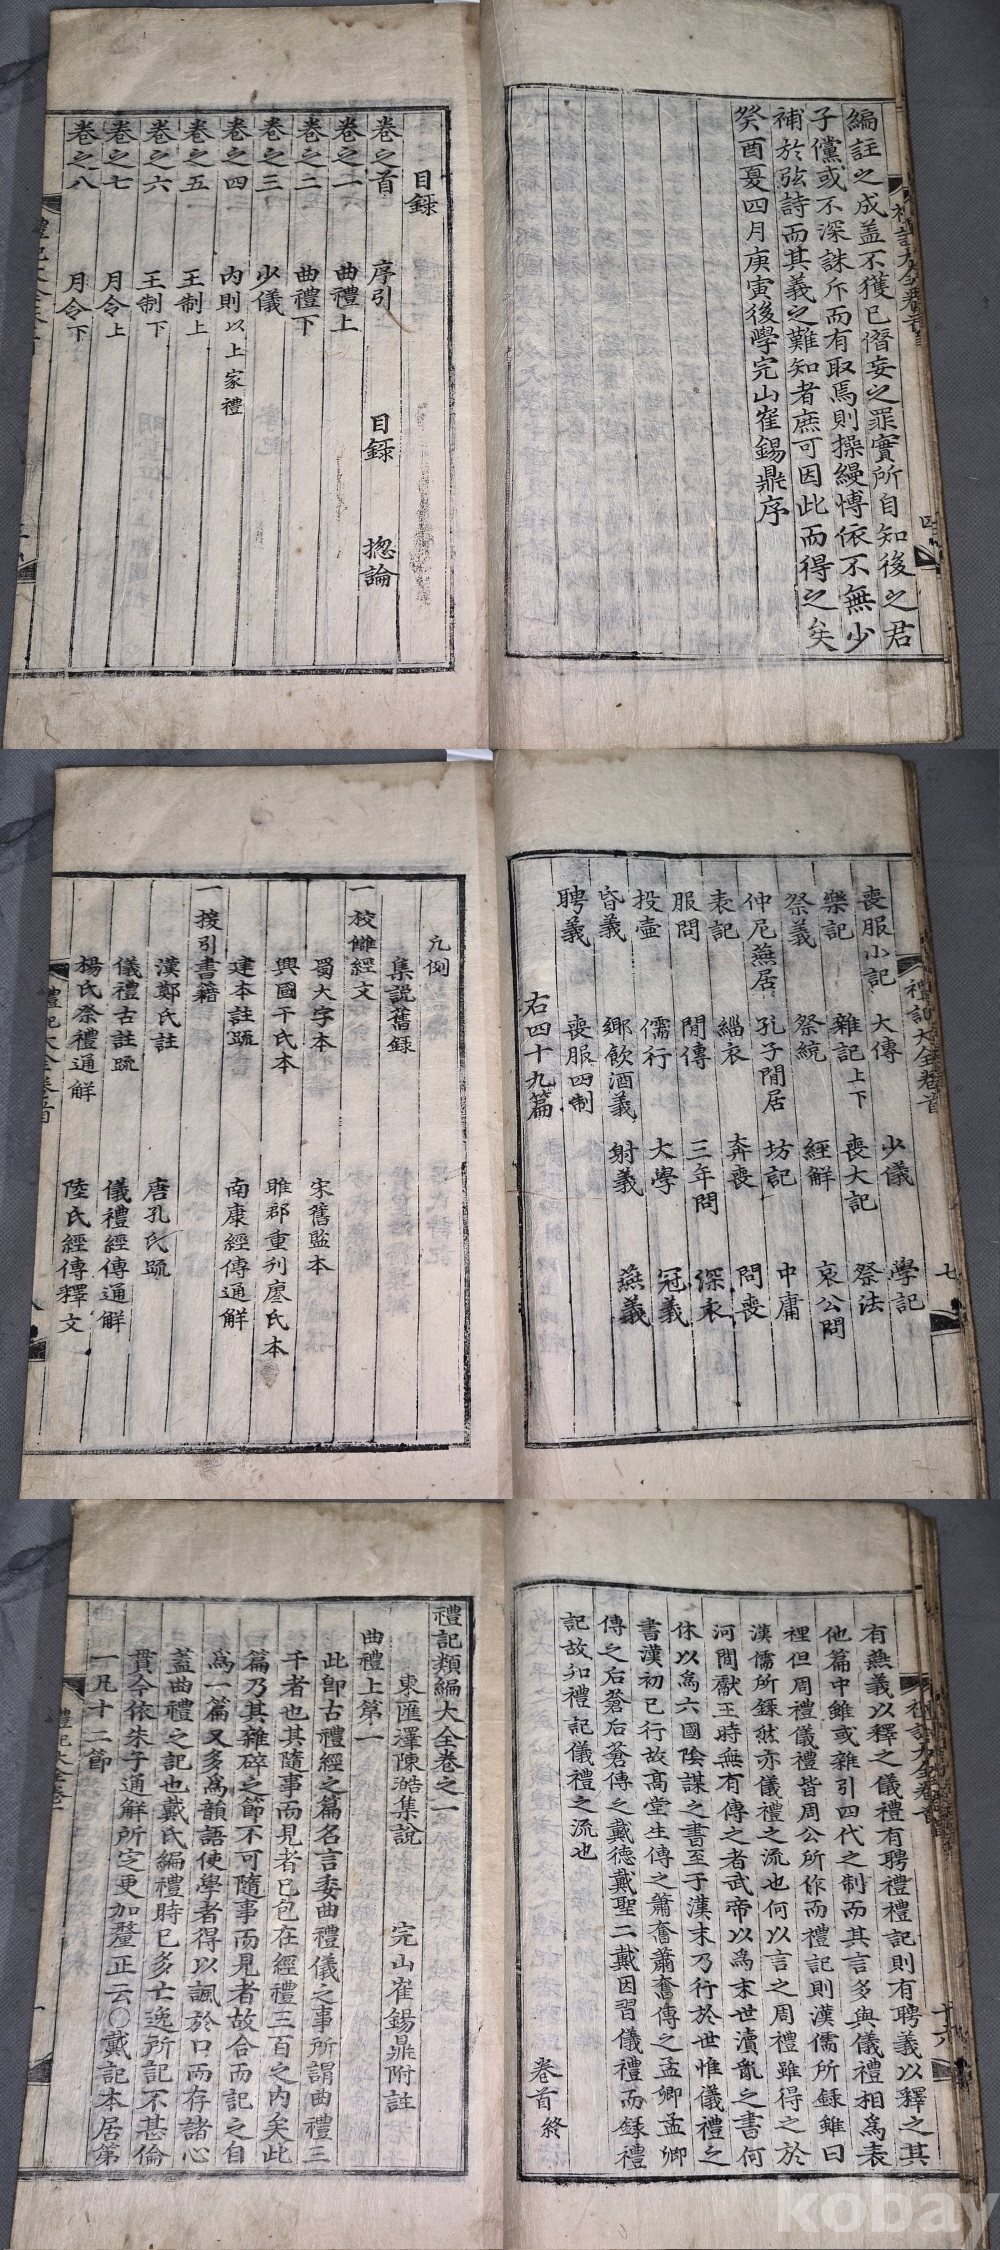 編註之成盖不獲已僭妄之罪實所自知後之君
子儻或不深誅斥而有取焉則操縵博依不無少
補於弦詩而其義之難知者庶可因此而得之矣
癸酉夏四月庚寅後學完山崔錫鼎序
目録
卷之首 序引 目録 揔論
卷之一 曲禮上
卷之二 曲禮下
卷之三 少儀
卷之四 內則以上家禮
卷之五 王制上
卷之六 王制下
卷之七 月令上
卷之八 月令下
禮記大全卷首
七
喪服小記 大傳 少儀 學記
樂記 雜記上下 喪大記 祭法
祭義 祭統 經解 哀公問
仲尼燕居 孔子閒居 坊記 中庸
表記 緇衣 奔喪 問喪
服問 閒傳 三年問 深衣
投壺 儒行 大學 冠義
昏義 鄉飮酒義 射義 燕義
聘義 喪服四制
右四十九篇
凡例
集說舊録
一校讎經文
蜀大字本 宋舊監本
興國于氏本 盱郡重刋廖氏本
建本註䟽 南康經傳通解
一援引書籍
漢鄭氏註 唐孔氏䟽
儀禮古註䟽 儀禮經傳通解
楊氏祭禮通解 陸氏經傳釋文
禮記大全卷首
十六
有燕義以釋之儀禮有聘禮禮記則有聘義以釋之其
他篇中雖或雜引四代之制而其言多與儀禮相爲表
裡但周禮儀禮皆周公所作而禮記則漢儒所録雖曰
漢儒所録然亦儀禮之流也何以言之周禮雖得之於
河間獻王時無有傳之者武帝以爲末世瀆亂之書何
休以爲六國陰謀之書至于漢末乃行於世惟儀禮之
書漢初已行故高堂生傳之蕭奮蕭奮傳之孟卿孟卿
傳之后蒼后蒼傳之戴德戴聖二戴因習儀禮而録禮
記故知禮記儀禮之流也
卷首終
禮記類編大全卷之一
東匯澤陳澔集說 完山崔錫鼎附註
曲禮上第一
此卽古禮經之篇名言委曲禮儀之事所謂曲禮三
千者也其隨事而見者已包在經禮三百之內矣此
篇乃其雜碎之節不可隨事而見者故合而記之自
爲一篇又多爲韻語使學者得以諷於口而存諸心
蓋曲禮之記也戴氏編禮時已多亡逸所記不甚倫
貫今依朱子通解所定更加釐正云○戴記本居第
一凡十二節